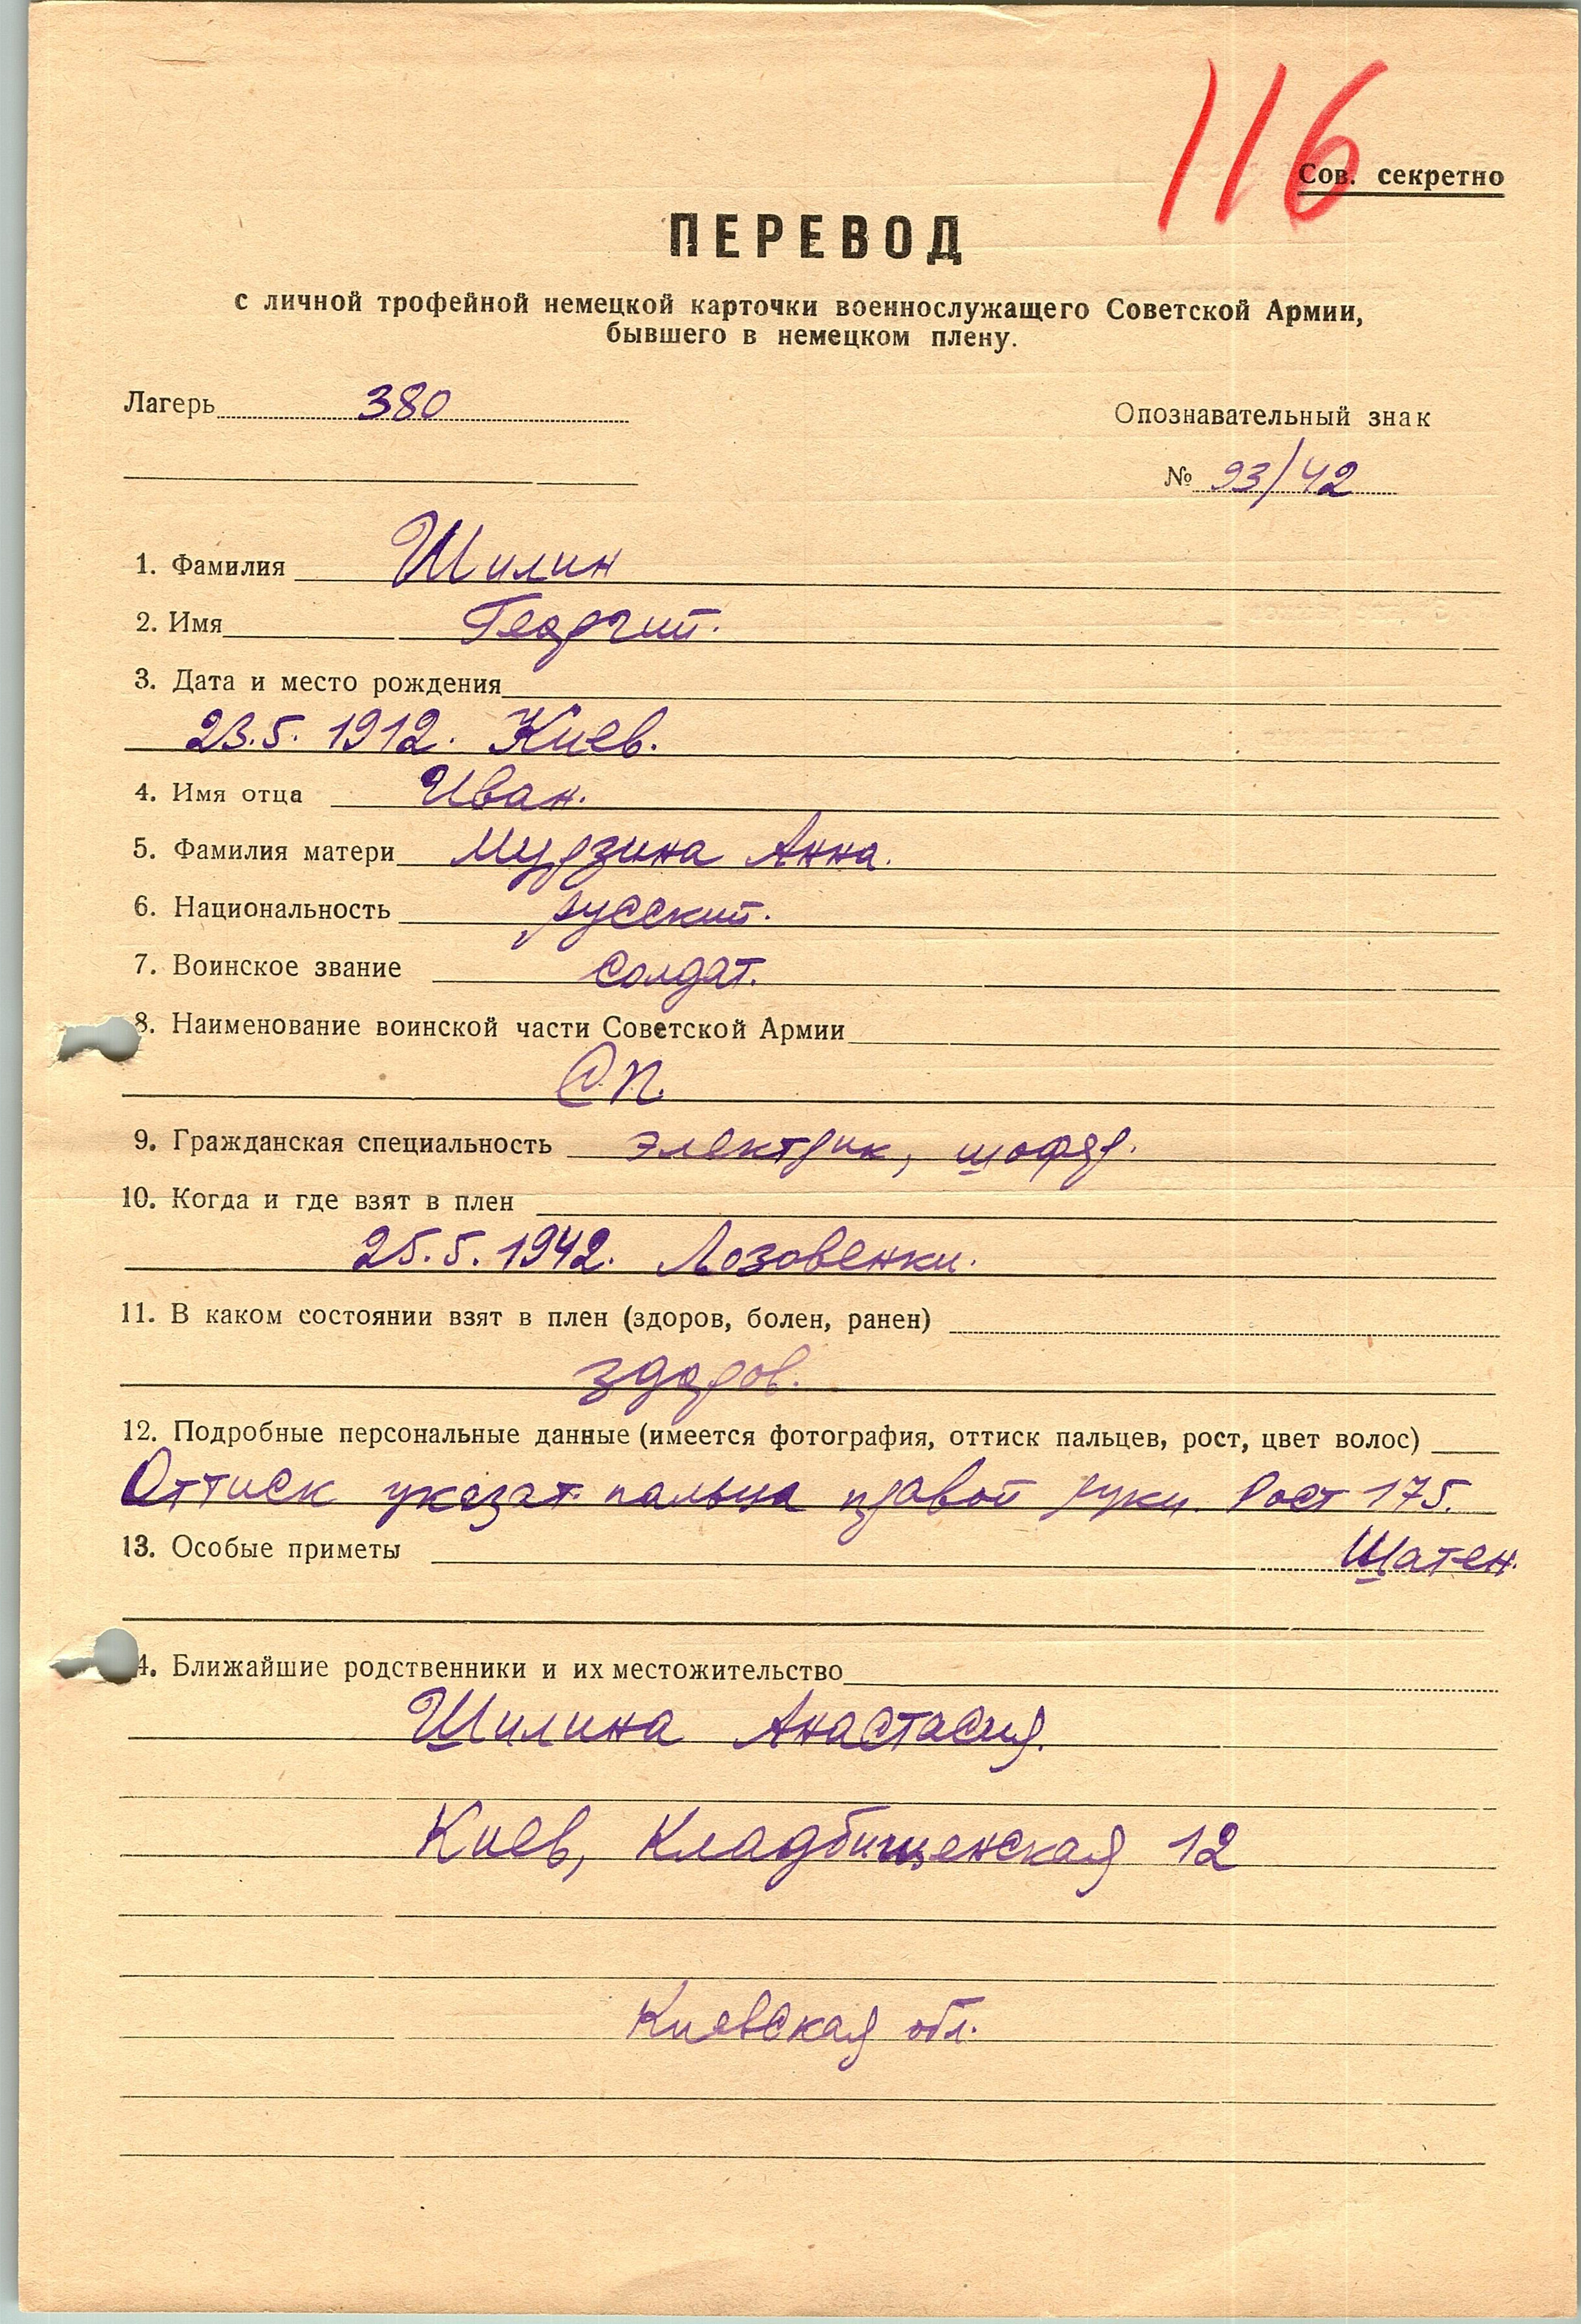 116
Сов. секретно
ПЕРЕВОД
с личной трофейной немецкой карточки военнослужащего Советской Армии,
бывшего в немецком плену.
Лагерь 380
Опознавательный знак
№ 93/42
1. Фамилия Шилин
2. Имя Георгий.
3. Дата и место рождения
23.5. 1912. Киев.
4. Имя отца Иван.
5. Фамилия матери Мурзина Анна.
6. Национальность русский.
7. Воинское звание солдат.
8. Наименование воинской части Советской Армии
СП.
9. Гражданская специальность электрик, шофер.
10. Когда и где взят в плен
25.5.1942. Лозовенки.
11. В каком состоянии взят в плен (здоров, болен, ранен)
здоров.
12. Подробные персональные данные (имеется фотография, оттиск пальцев, рост, цвет волос)
Оттиск указат. пальца правой руки. Рост 175.
13. Особые приметы Шатен.
4. Ближайшие родственники и их местожительство
Шилина Анастасия.
Киев, Кладбищенская 12
Киевская обл.